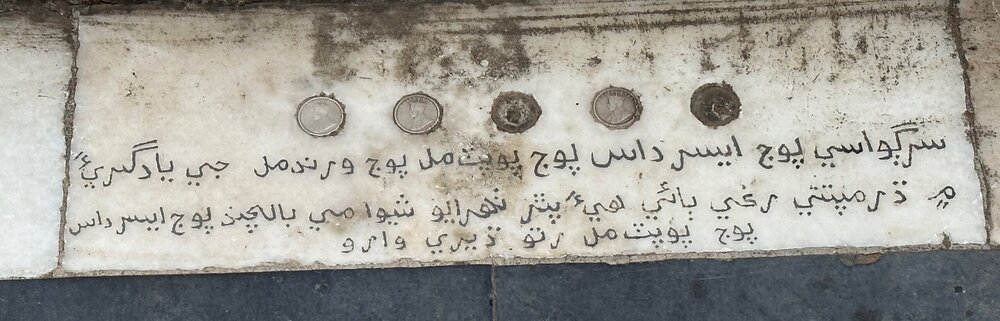 سرڳواسي پوڄ ايسر داس پوڄ پوپٽ مل پوڄ ورندمل جي يادگيريءَ
۾ ڌرمپتني رغي ٻائي هيءُ پٿر ٺهرايو شيوا مي ٻالڪچند پوڄ ايسرداس
پوڄ پوپٽ مل رتو ڏيري وارو